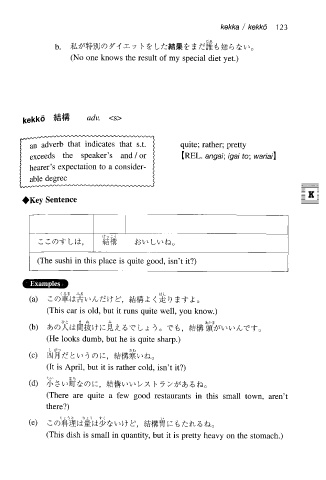 kekka / kekkō 123
b. 私が特別のダイエットをした結果をまだ誰も知らない。
(No one knows the result of my special diet yet.)
kekkō 結構 adv. <s>
an adverb that indicates that s.t.
exceeds the speaker's and/or
hearer's expectation to a consider-
able degree
quite; rather; pretty
【REL. angai; igai to; wariai】
K
◆Key Sentence
ここのすしは、 結構 おいしいね。
(The sushi in this place is quite good, isn't it?)
Examples
(a) この車は古いんだけど、結構よく走りますよ。
(This car is old, but it runs quite well, you know.)
(b) あの人は間抜けに見えるでしょう。でも、結構頭がいいんです。
(He looks dumb, but he is quite sharp.)
(c) 四月だというのに、結構寒いね。
(It is April, but it is rather cold, isn't it?)
(d) 小さい町なのに、結構いいレストランがあるね。
(There are quite a few good restaurants in this small town, aren't
there?)
(e) この料理は量は少ないけど、結構胃にもたれるね。
(This dish is small in quantity, but it is pretty heavy on the stomach.)